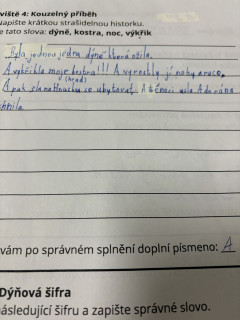 viště 4: Kouzelný příběh
apište krátkou strašidelnou historku.
e tato slova: dýně, kostra, noc, výkřik
Byla jednou jedna dýně která ožila.
A vykřikla moje kostra!!! A vyrostly jí nohy a ruce.
(hrad)
A pak šla na se ubytovat. A v noci šla A do rána
shnila.
vám po správném splnění doplní písmeno: A
Dýňová šifra
ásledující šifru a zapište správné slovo.